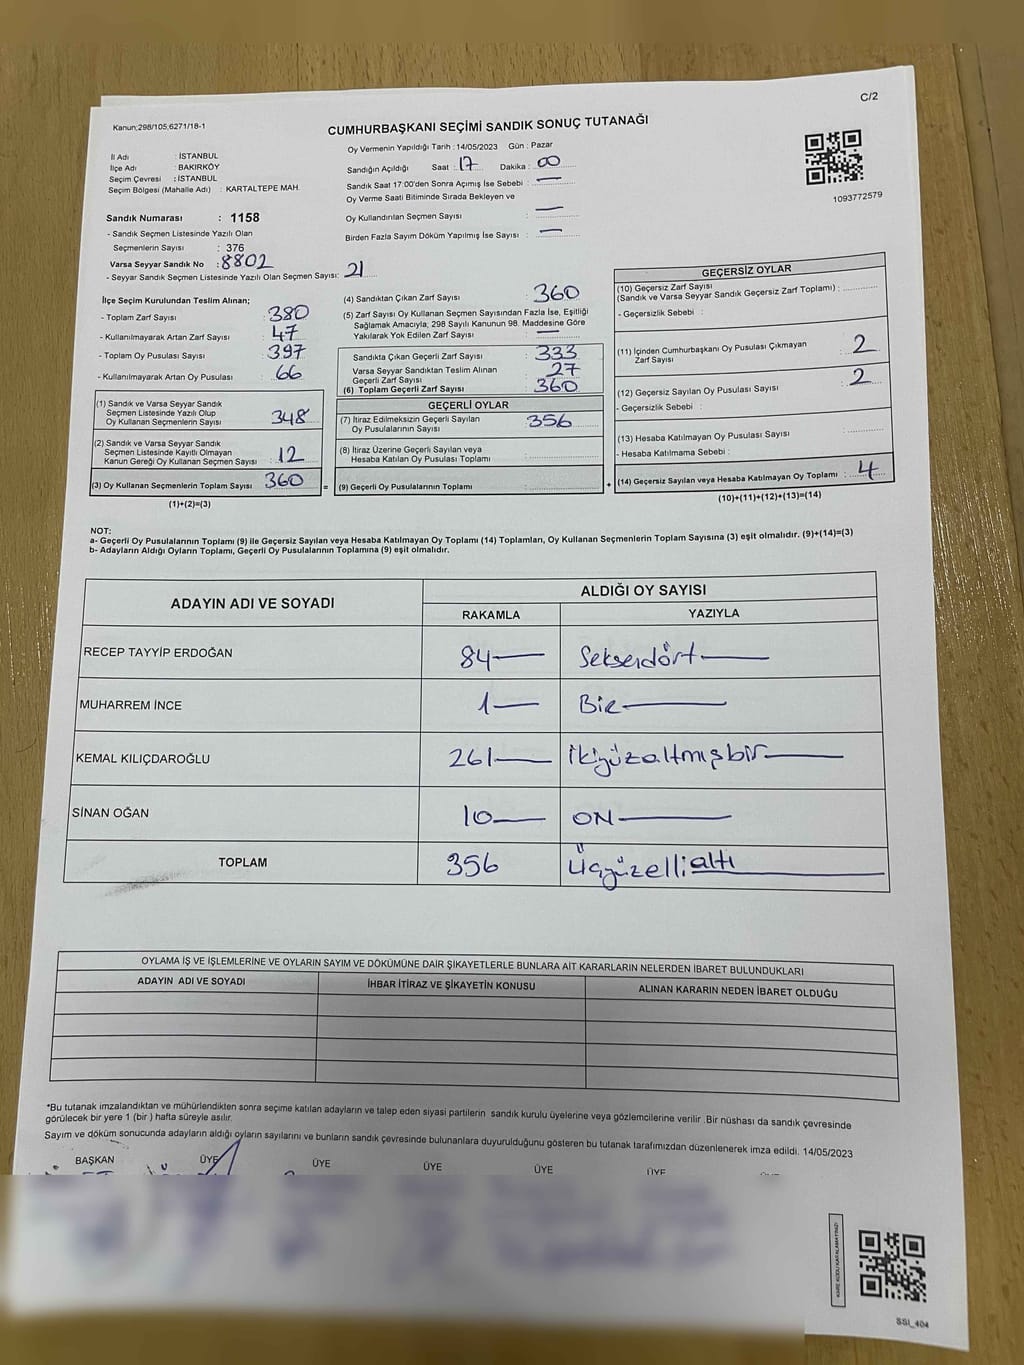 C/2
Kanun;298/105;6271/18-1
CUMHURBAŞKANI SEÇİMİ SANDIK SONUÇ TUTANAĞI
1093772579
İl Adı : İSTANBUL
İlçe Adı : BAKIRKÖY
Seçim Çevresi : İSTANBUL
Seçim Bölgesi (Mahalle Adı) : KARTALTEPE MAH.
Sandık Numarası : 1158
- Sandık Seçmen Listesinde Yazılı Olan
Seçmenlerin Sayısı : 376
Varsa Seyyar Sandık No : 8802
- Seyyar Sandık Seçmen Listesinde Yazılı Olan Seçmen Sayısı: 21
Oy Vermenin Yapıldığı Tarih : 14/05/2023 Gün : Pazar
Sandığın Açıldığı Saat : 17 Dakika : 00
Sandık Saat 17:00'den Sonra Açımış İse Sebebi : —
Oy Verme Saati Bitiminde Sırada Bekleyen ve
Oy Kullandırılan Seçmen Sayısı : —
Birden Fazla Sayım Döküm Yapılmış İse Sayısı : —
İlçe Seçim Kurulundan Teslim Alınan;
- Toplam Zarf Sayısı : 380
- Kullanılmayarak Artan Zarf Sayısı : 47
- Toplam Oy Pusulası Sayısı : 397
- Kullanılmayarak Artan Oy Pusulası : 66
(1) Sandık ve Varsa Seyyar Sandık
Seçmen Listesinde Yazılı Olup
Oy Kullanan Seçmenlerin Sayısı : 348
(2) Sandık ve Varsa Seyyar Sandık
Seçmen Listesinde Kayıtlı Olmayan
Kanun Gereği Oy Kullanan Seçmen Sayısı : 12
(3) Oy Kullanan Seçmenlerin Toplam Sayısı : 360
(1)+(2)=(3)
(4) Sandıktan Çıkan Zarf Sayısı : 360
(5) Zarf Sayısı Oy Kullanan Seçmen Sayısından Fazla İse, Eşitliği
Sağlamak Amacıyla; 298 Sayılı Kanunun 98. Maddesine Göre
Yakılarak Yok Edilen Zarf Sayısı : —
Sandıkta Çıkan Geçerli Zarf Sayısı : 333
Varsa Seyyar Sandıktan Teslim Alınan
Geçerli Zarf Sayısı : 27
(6) Toplam Geçerli Zarf Sayısı : 360
=
GEÇERLİ OYLAR
(7) İtiraz Edilmeksizin Geçerli Sayılan
Oy Pusulalarının Sayısı : 356
(8) İtiraz Üzerine Geçerli Sayılan veya
Hesaba Katılan Oy Pusulası Toplamı :
(9) Geçerli Oy Pusulalarının Toplamı :
+
GEÇERSİZ OYLAR
(10) Geçersiz Zarf Sayısı
(Sandık ve Varsa Seyyar Sandık Geçersiz Zarf Toplamı) :
- Geçersizlik Sebebi :
(11) İçinden Cumhurbaşkanı Oy Pusulası Çıkmayan
Zarf Sayısı : 2
(12) Geçersiz Sayılan Oy Pusulası Sayısı : 2
- Geçersizlik Sebebi :
(13) Hesaba Katılmayan Oy Pusulası Sayısı :
- Hesaba Katılmama Sebebi :
(14) Geçersiz Sayılan veya Hesaba Katılmayan Oy Toplamı : 4
(10)+(11)+(12)+(13)=(14)
NOT:
a- Geçerli Oy Pusulalarının Toplamı (9) ile Geçersiz Sayılan veya Hesaba Katılmayan Oy Toplamı (14) Toplamları, Oy Kullanan Seçmenlerin Toplam Sayısına (3) eşit olmalıdır. (9)+(14)=(3)
b- Adayların Aldığı Oyların Toplamı, Geçerli Oy Pusulalarının Toplamına (9) eşit olmalıdır.
ADAYIN ADI VE SOYADI
ALDIĞI OY SAYISI
RAKAMLA YAZIYLA
RECEP TAYYİP ERDOĞAN 84— Seksendört—
MUHARREM İNCE 1— Bir—
KEMAL KILIÇDAROĞLU 261— ikiyüzaltmışbir—
SİNAN OĞAN 10— ON—
TOPLAM 356 Üçyüzellialtı
OYLAMA İŞ VE İŞLEMLERİNE VE OYLARIN SAYIM VE DÖKÜMÜNE DAİR ŞİKAYETLERLE BUNLARA AİT KARARLARIN NELERDEN İBARET BULUNDUKLARI
ADAYIN ADI VE SOYADI İHBAR İTİRAZ VE ŞİKAYETİN KONUSU ALINAN KARARIN NEDEN İBARET OLDUĞU
*Bu tutanak imzalandıktan ve mühürlendikten sonra seçime katılan adayların ve talep eden siyasi partilerin sandık kurulu üyelerine veya gözlemcilerine verilir. Bir nüshası da sandık çevresinde
görülecek bir yere 1 (bir ) hafta süreyle asılır.
Sayım ve döküm sonucunda adayların aldığı oyların sayılarını ve bunların sandık çevresinde bulunanlara duyurulduğunu gösteren bu tutanak tarafımızdan düzenlenerek imza edildi. 14/05/2023
BAŞKAN ÜYE ÜYE ÜYE ÜYE ÜYE
KARE KODU KARALAMAYINIZ!
SSI_404